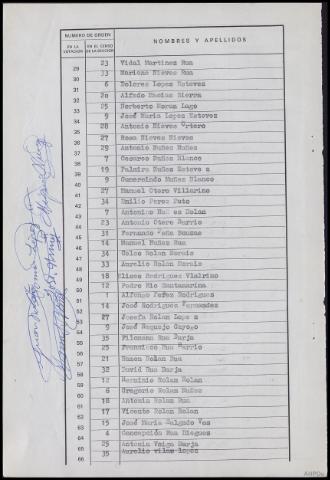 NUMERO DE ORDEN
NOMBRES Y APELLIDOS
EN LA VOTACION
EN EL CENSO DE LA SECCION
29 23 Vidal Martinez Rua
30 33 Mariano Nieves Rua
31 6 Dolores Lopez Estevez
32 20 Alfredo Macias Sierra
33 25 Norberto Moran Lago
34 9 José Maria Lopez Estevez
35 28 Antonio Nieves
36 27 Rosa Nieves Nieves
37 29 Antonio Nuñez Nuñez
38 7 Cesareo Nuñez Blanco
39 19 Palmira Nuñez Esteve z
40 9 Gumersindo Nuñez Blanco
41 27 Manuel Otero Villarino
42 34 Emilio Perez Puto
43 7 Antonino Nuñez Dolan
44 23 Antonio Otero Barrio
45 31 Fernando Peña Bouzas
46 14 Manuel Nuñez Rua
47 34 Celso Rolan Morais
48 33 Aurelio Rolan Morais
49 18 Eliseo Rodriguez Vialrino
50 12 Pedro Rio Santamarina
51 1 Alfonso Perez Rodrigues
52 14 José Rodriguez Fernandez
53 27 Josefa Rolan Lope z
54 9 José Requejo Gayogo
55 35 Filomena Rua Barja
56 25 Francisco Rua Barrio
57 21 Ramon Rolan Rua
58 32 David Rua Barja
59 12 Herminio Rolan Rolan
60 6 Gregorio Rolan Nuñez
61 18 Antonio Rolan Rua
62 17 Vicente Rolan Rolan
63 15 José Maria Salgado Vaz
64 4 Concepción Rua Dieguez
65 25 Antonio Veiga Barja
66 35 Aurelio vilas lopez